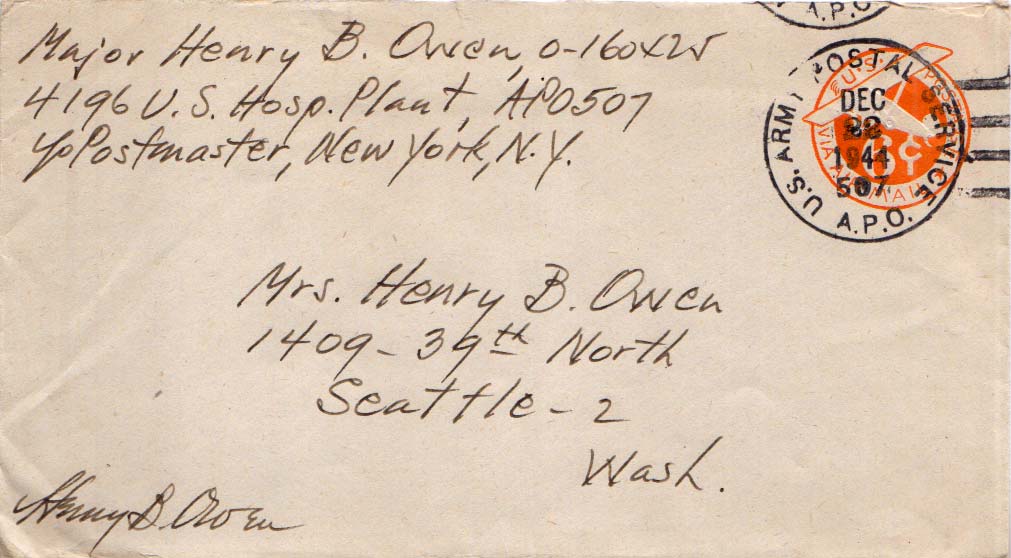 Major Henry B. Owen, O-160425
4196 U.S. Hosp. Plant, APO507
c/o Postmaster, New York, N.Y.
A.P.O
U.S. ARMY POSTAL SERVICE
A.P.O.
DEC
1944
507
U.S. POS
VIA AIR MAIL
6¢
Mrs. Henry B. Owen
1409-39th North
Seattle-2
Wash.
Henry B. Owen